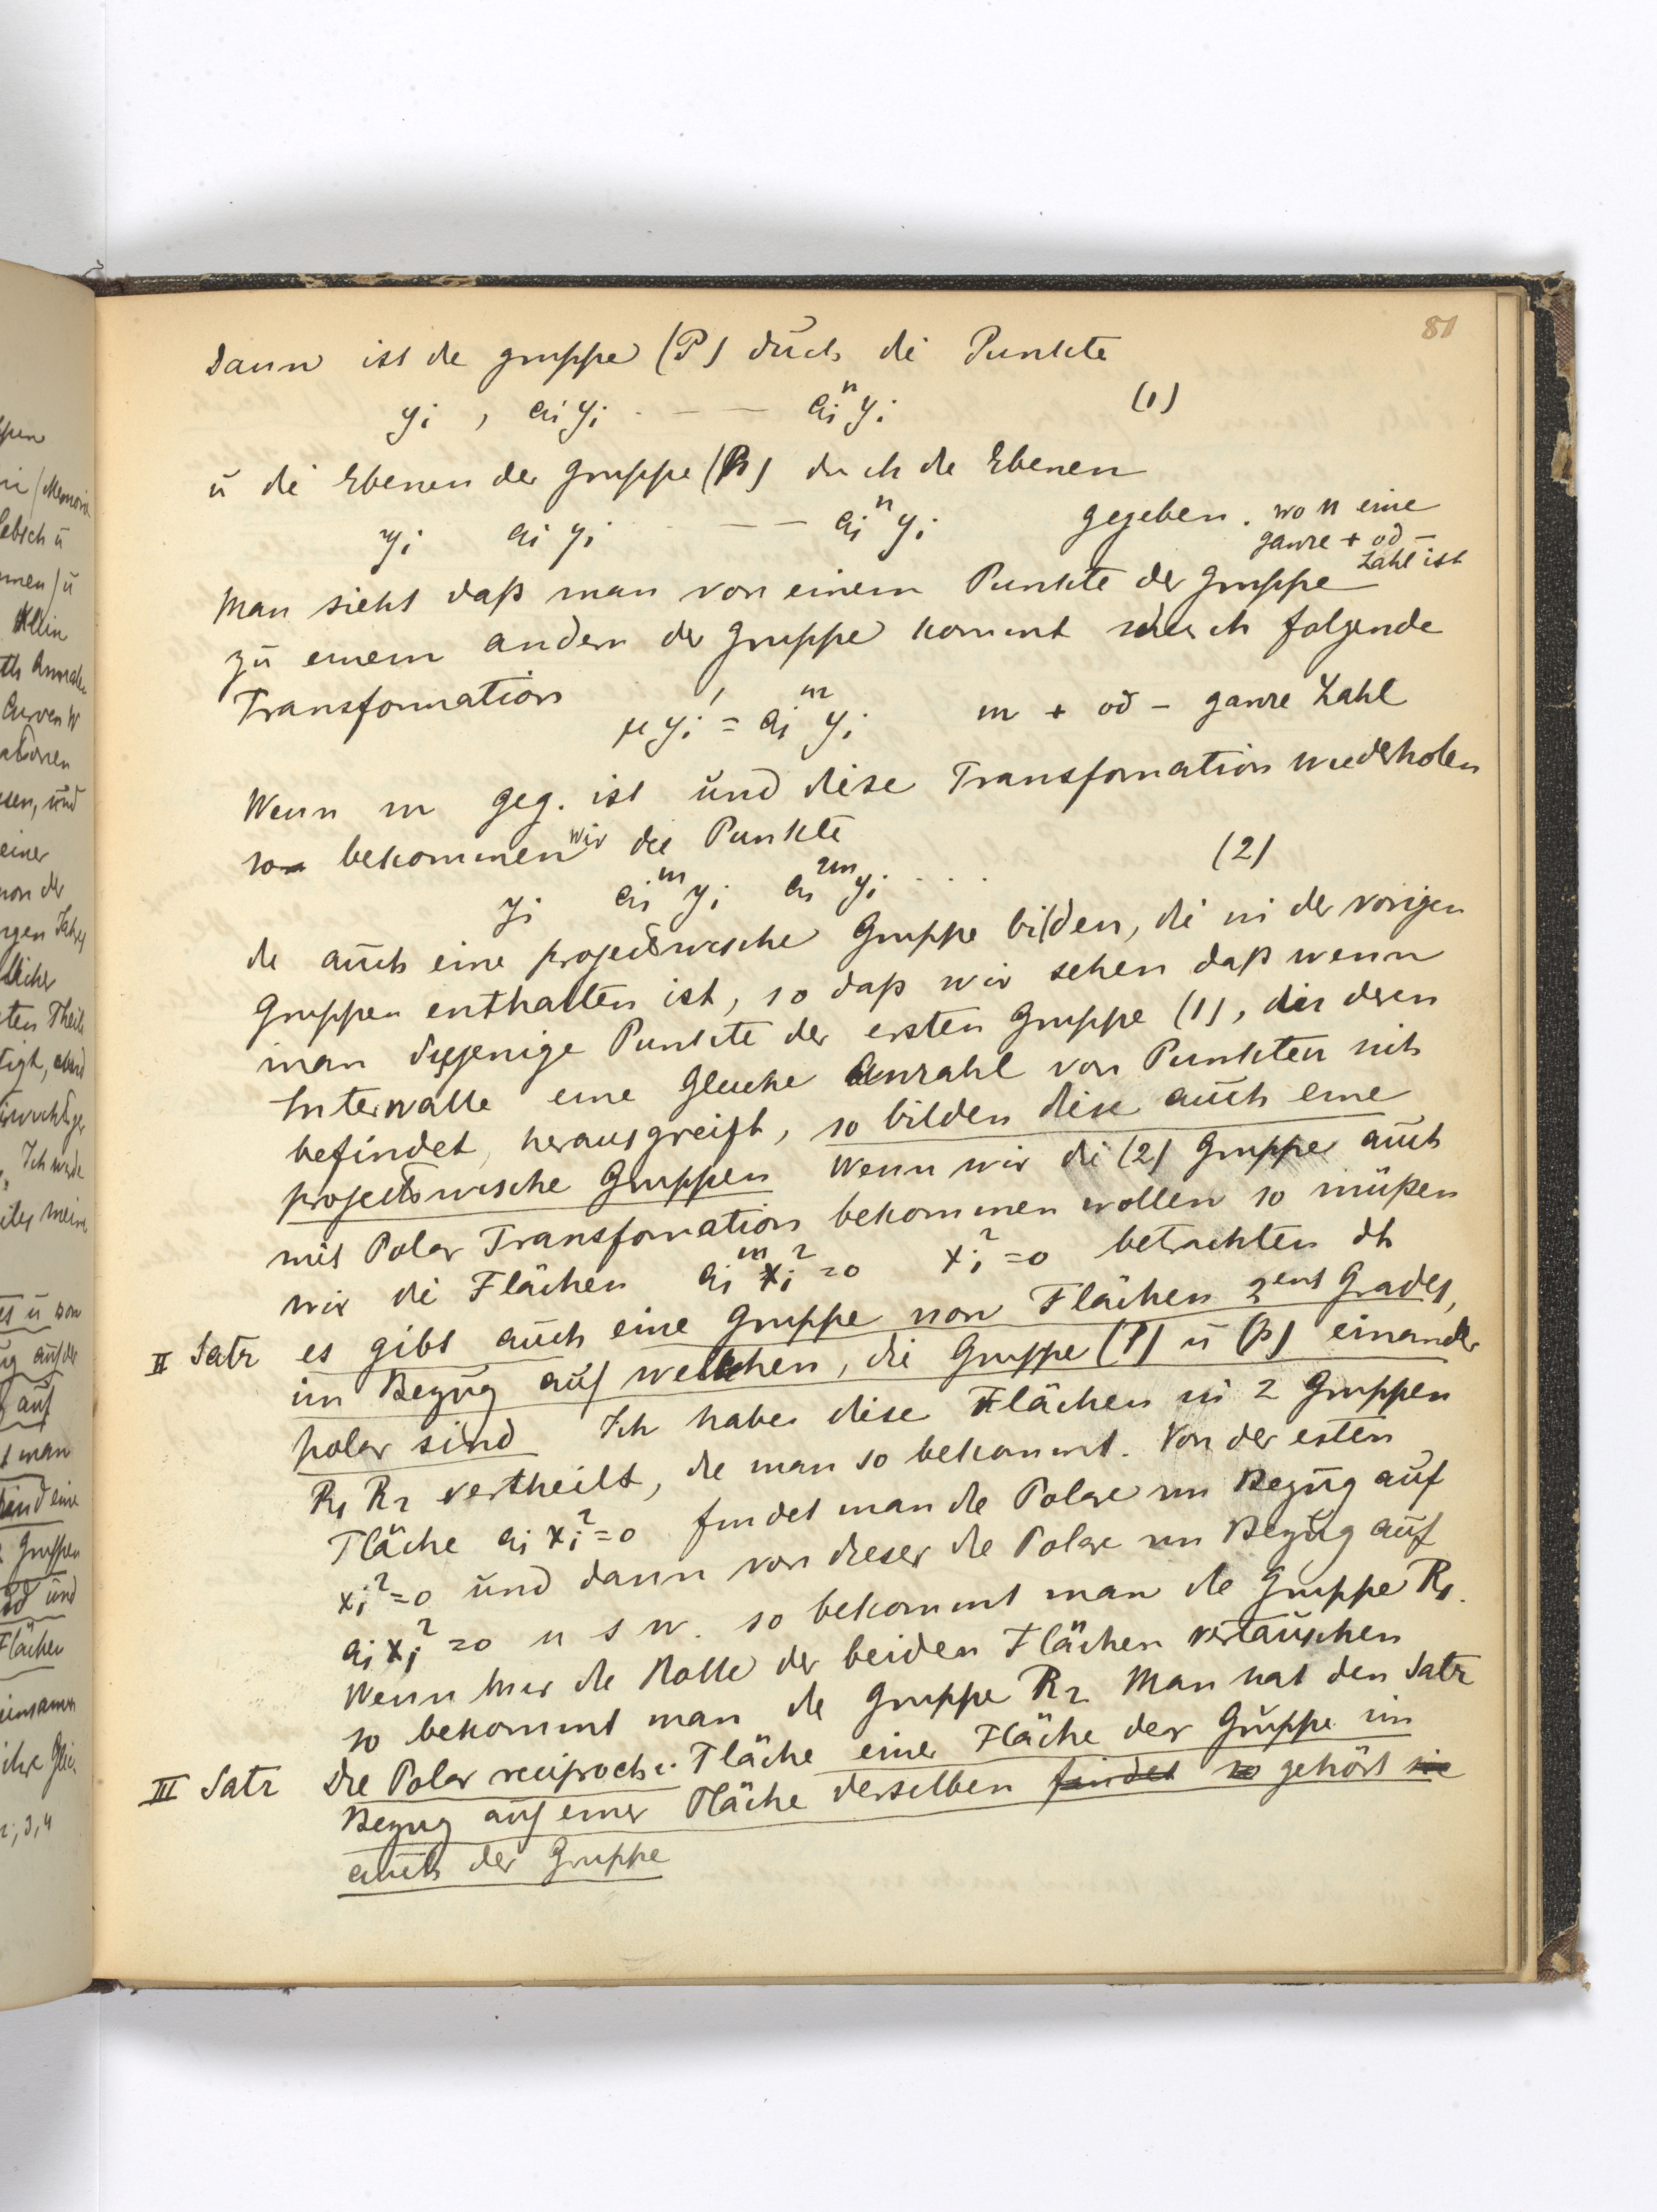 81
Dann ist de Gruppe (P) durch di Punkte
yi , ai yi - - - ai^n yi (1)
ū di Ebenen der Gruppe (p) duch die Ebenen
yi ai yi - - - ai^n yi gegeben. wo n eine
ganze + od −
Zahl ist
Man sieht daß man von einem Punkte der Gruppe
zū einem andern der Gruppe kommt durch folgende
Transformation μ yi' = ai^m yi m + od − ganze Zahl
Wenn m geg. ist ūnd diese Transfomation wiederholen
so bekommen wir die Punkte
yi ai^m yi ai^2m yi . . . (2)
de aūch eine projectivische Gruppe bilden, di in der vorigen
Gruppen enthalten ist, so daß wir sehen daß wenn
man diejenige Punkte der ersten Gruppe (1), die deren
Intervalle eine gleiche Anzahl von Punkten sich
befindet, herausgreift, so bilden diese aūch eine
projectivische Gruppen Wenn wir di (2) Gruppe aūch
mit Polar Transfomation bekommen wollen so müßen
wir di Flächen ai^m xi^2 = 0 xi^2 = 0 betrachten dh
II Satz es gibt aūch eine Gruppe von Flächen 2ent Grades,
im Bezūg aūf welchen, die Gruppe (P) ū (p) einander
polar sind Ich habe diese Flächen in 2 Gruppen
R1 R2 vertheilt, die man so bekommt. Von der esten
Fläche ai xi^2 = 0 findet man die Polare im Bezūg aūf
xi^2 = 0 ūnd dann von dieser die Polare im Bezūg aūf
ai xi^2 = 0 u s w. so bekommt man de Gruppe R1.
Wenn hier de Rolle der beiden Flächen vertaūschen
so bekommt man de Gruppe R2 Man hat den Satz
III Satz Die Polar reciproche Fläche einer Fläche der Grūppe im
Bezug aūf einer Fläche derselben findet so gehört sie
aūch der Gruppe